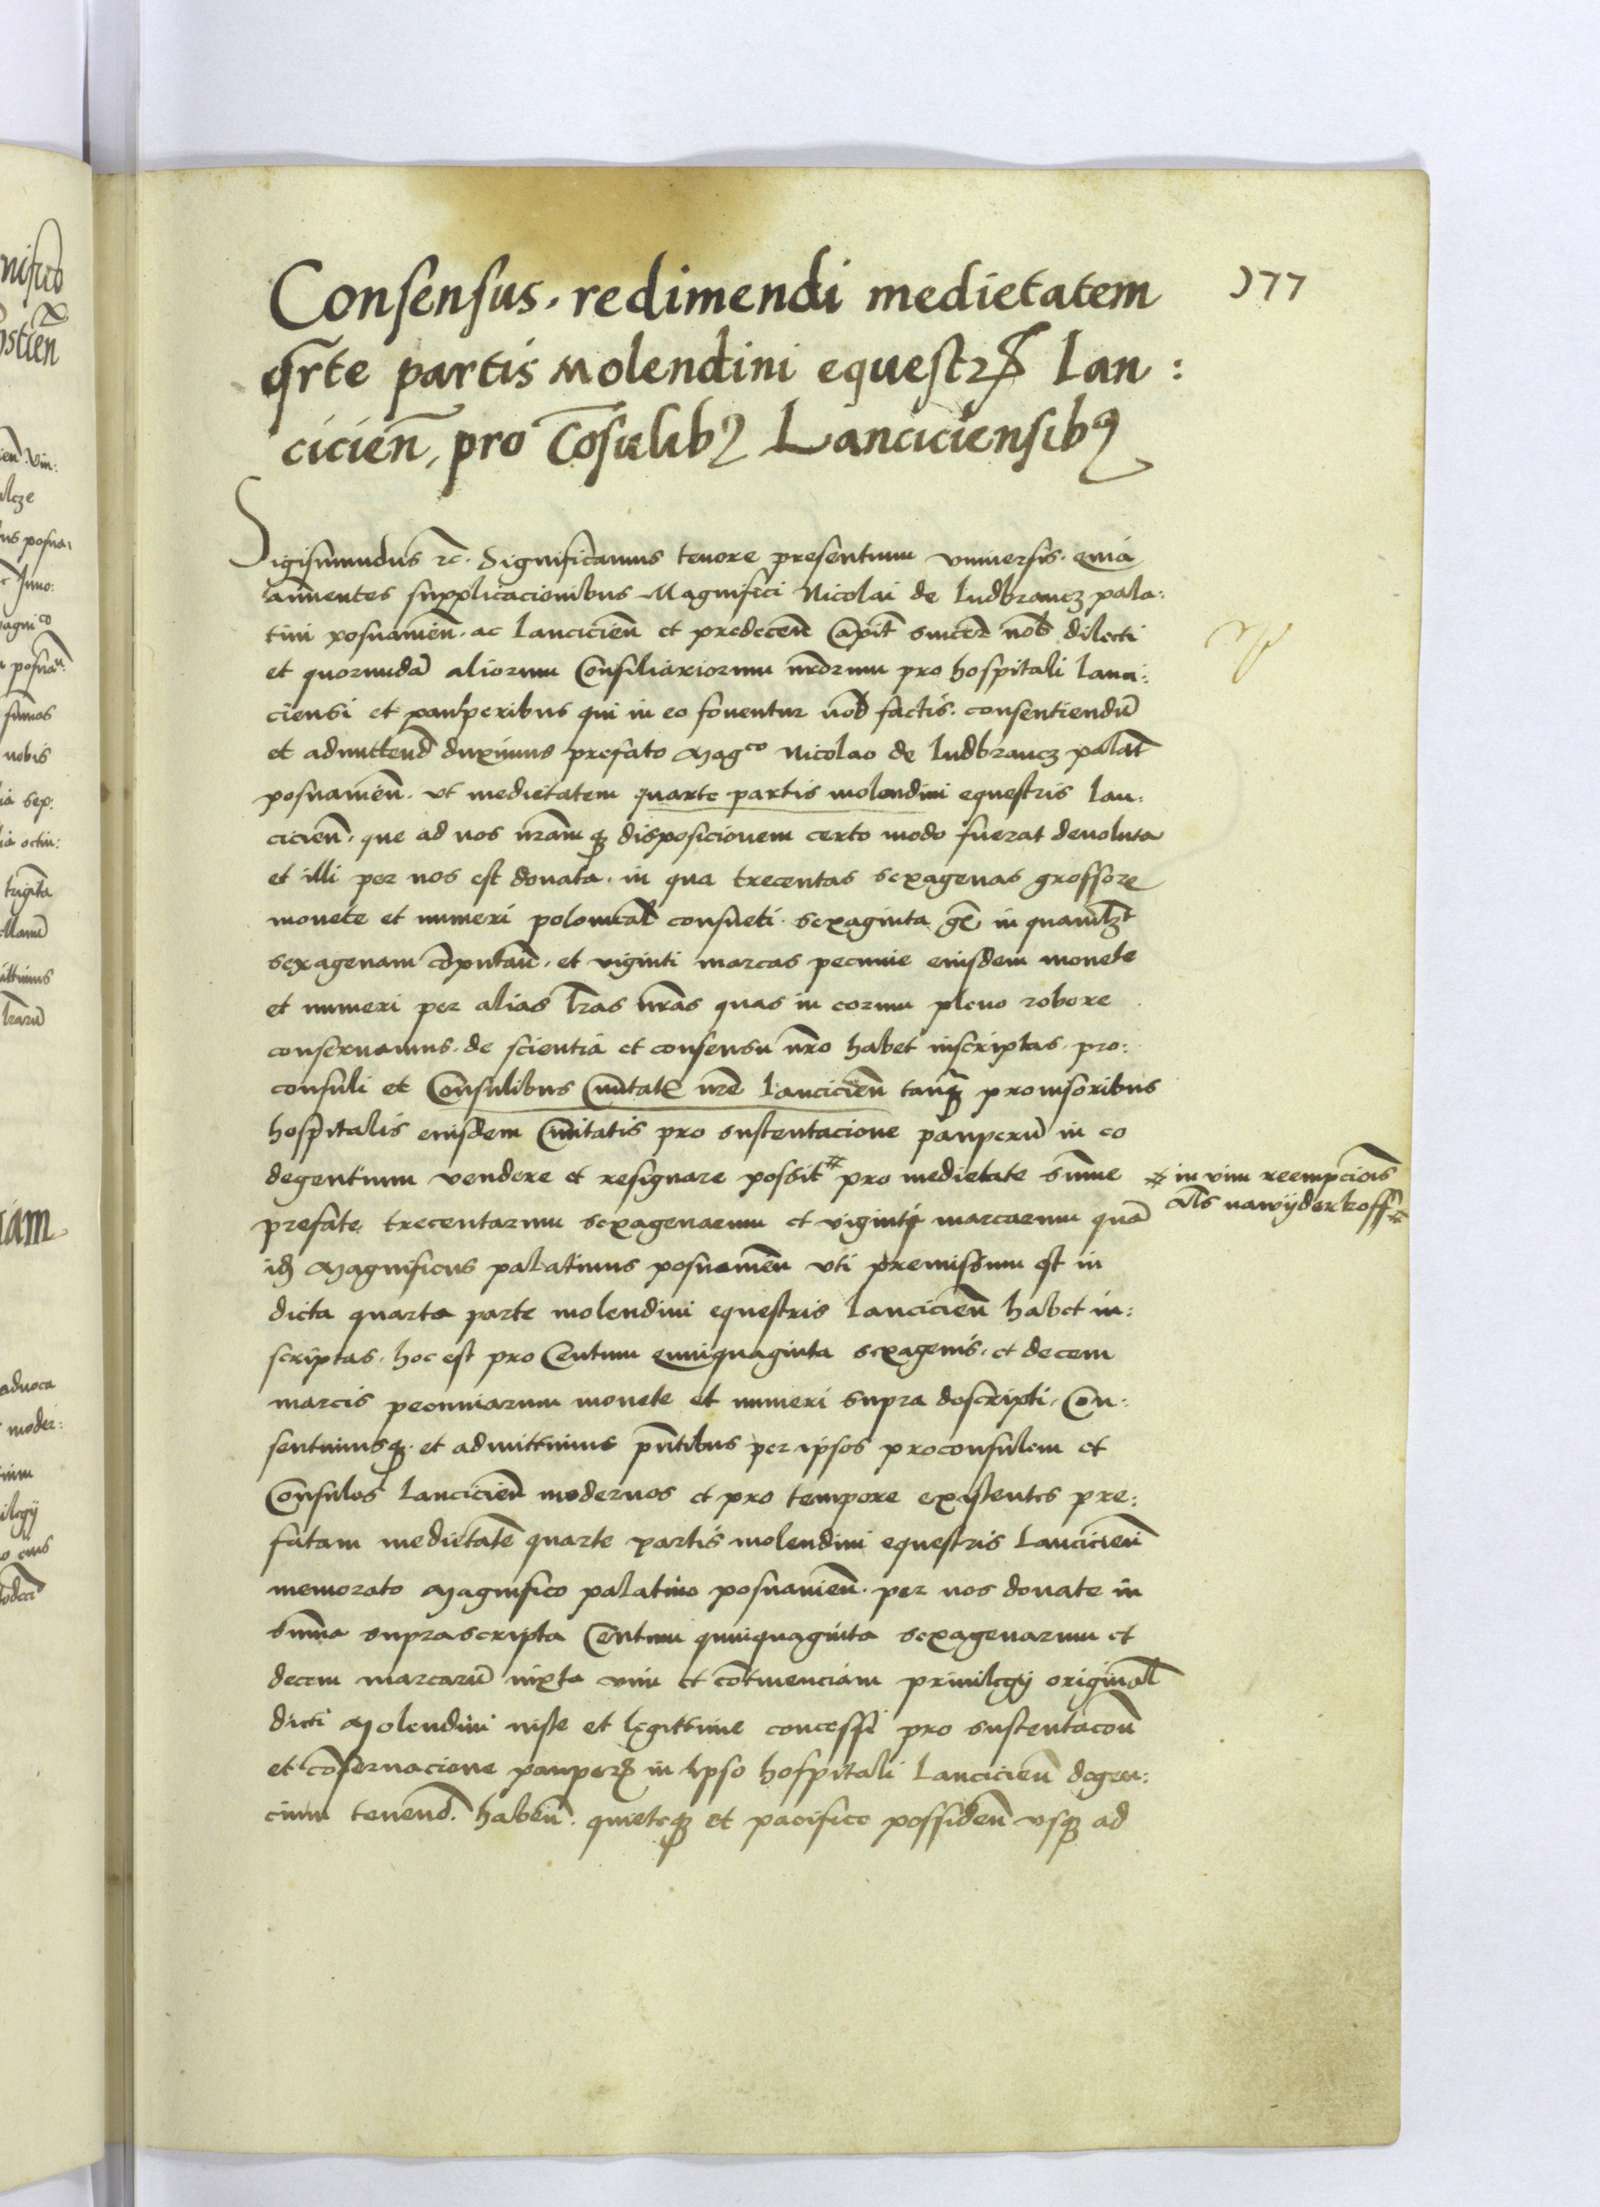 Consensus. redimendi medietatem
377
qrte partis Molendini equestrꝭ Lan:
cicieñ, pro Cōsulibꝰ Lanciciensibꝰ
Sigismundus ꝛc. Significamus tenore presentium vniversis. quia
annuentes supplicacionibus Magnifici Nicolai de ludbrancz pala:
tini posnanieñ. ac lancicieñ et Capit̄ sincere nob̄ dilecti
et quorundā aliorum Consiliariorum nr̄orum pro hospitali lanci:
ciensi et pauperibus qui in eo fouentur nob̄ factis. consentiendū
et admittend̄ duximus prefato Mag^co Nicolao de ludbrancz palat̄
posnanieñ. vt medietatem quarte partis molendini equestris lan:
cicieñ. que ad nos nr̄amqꝫ disposicionem certo modo fuerat deuoluta
et illi per nos est donata. in qua trecentas sexagenas grossorꝝ
monete et numeri polonical̄ consueti. sexaginta gr̄ in quamlꝫt
sexagenam cōputan̄. et viginti marcas pecunie eiusdem monete
et numeri per alias lr̄as nr̄as quas in eorum pleno robore
conseruamus. de scientia et consensu nr̄o habet inscriptas. pro:
consuli et Consulibus Ciuitatꝭ nr̄e lancicieñ tanqꝫ prouisoribus
hospitalis eiusdem Ciuitatis pro sustentacione pauperū in eo
degentium vendere et resignare possit # pro medietate summe
# in vim reempcionis
al̄s nawyderkoff #
prefate trecentarum sexagenarum et viginti marcarum quā
idē Magnificus palatinus posnanieñ vti premissum est in
dicta quarta parte molendini equestris lancicieñ habet in:
scriptas. hoc est pro Centum quinquaginta sexagenis. et decem
marcis pecuniarum monete et numeri supra descripti. Con:
sentimusqꝫ. et admittimus pn̄tibus per ipsos proconsulem et
Consules lancicieñ modernos et pro tempore existentes pre:
fatam medietatē quarte partis molendini equestris Lancicieñ
memorato Magnifico palatino posnanieñ. per nos donate in
summa suprascripta Centum quinquaginta sexagenarum et
decem marcarū iuxta vim et cōtinenciam priuilegij original̄
dicti Molendini iuste et legittime concessi pro sustentacōn
et cōseruacione pauperꝝ in ipso hospitali Lancicieñ degen:
cium tenend̄. habeñ. quieteqꝫ et pacifice possideñ vsqꝫ ad